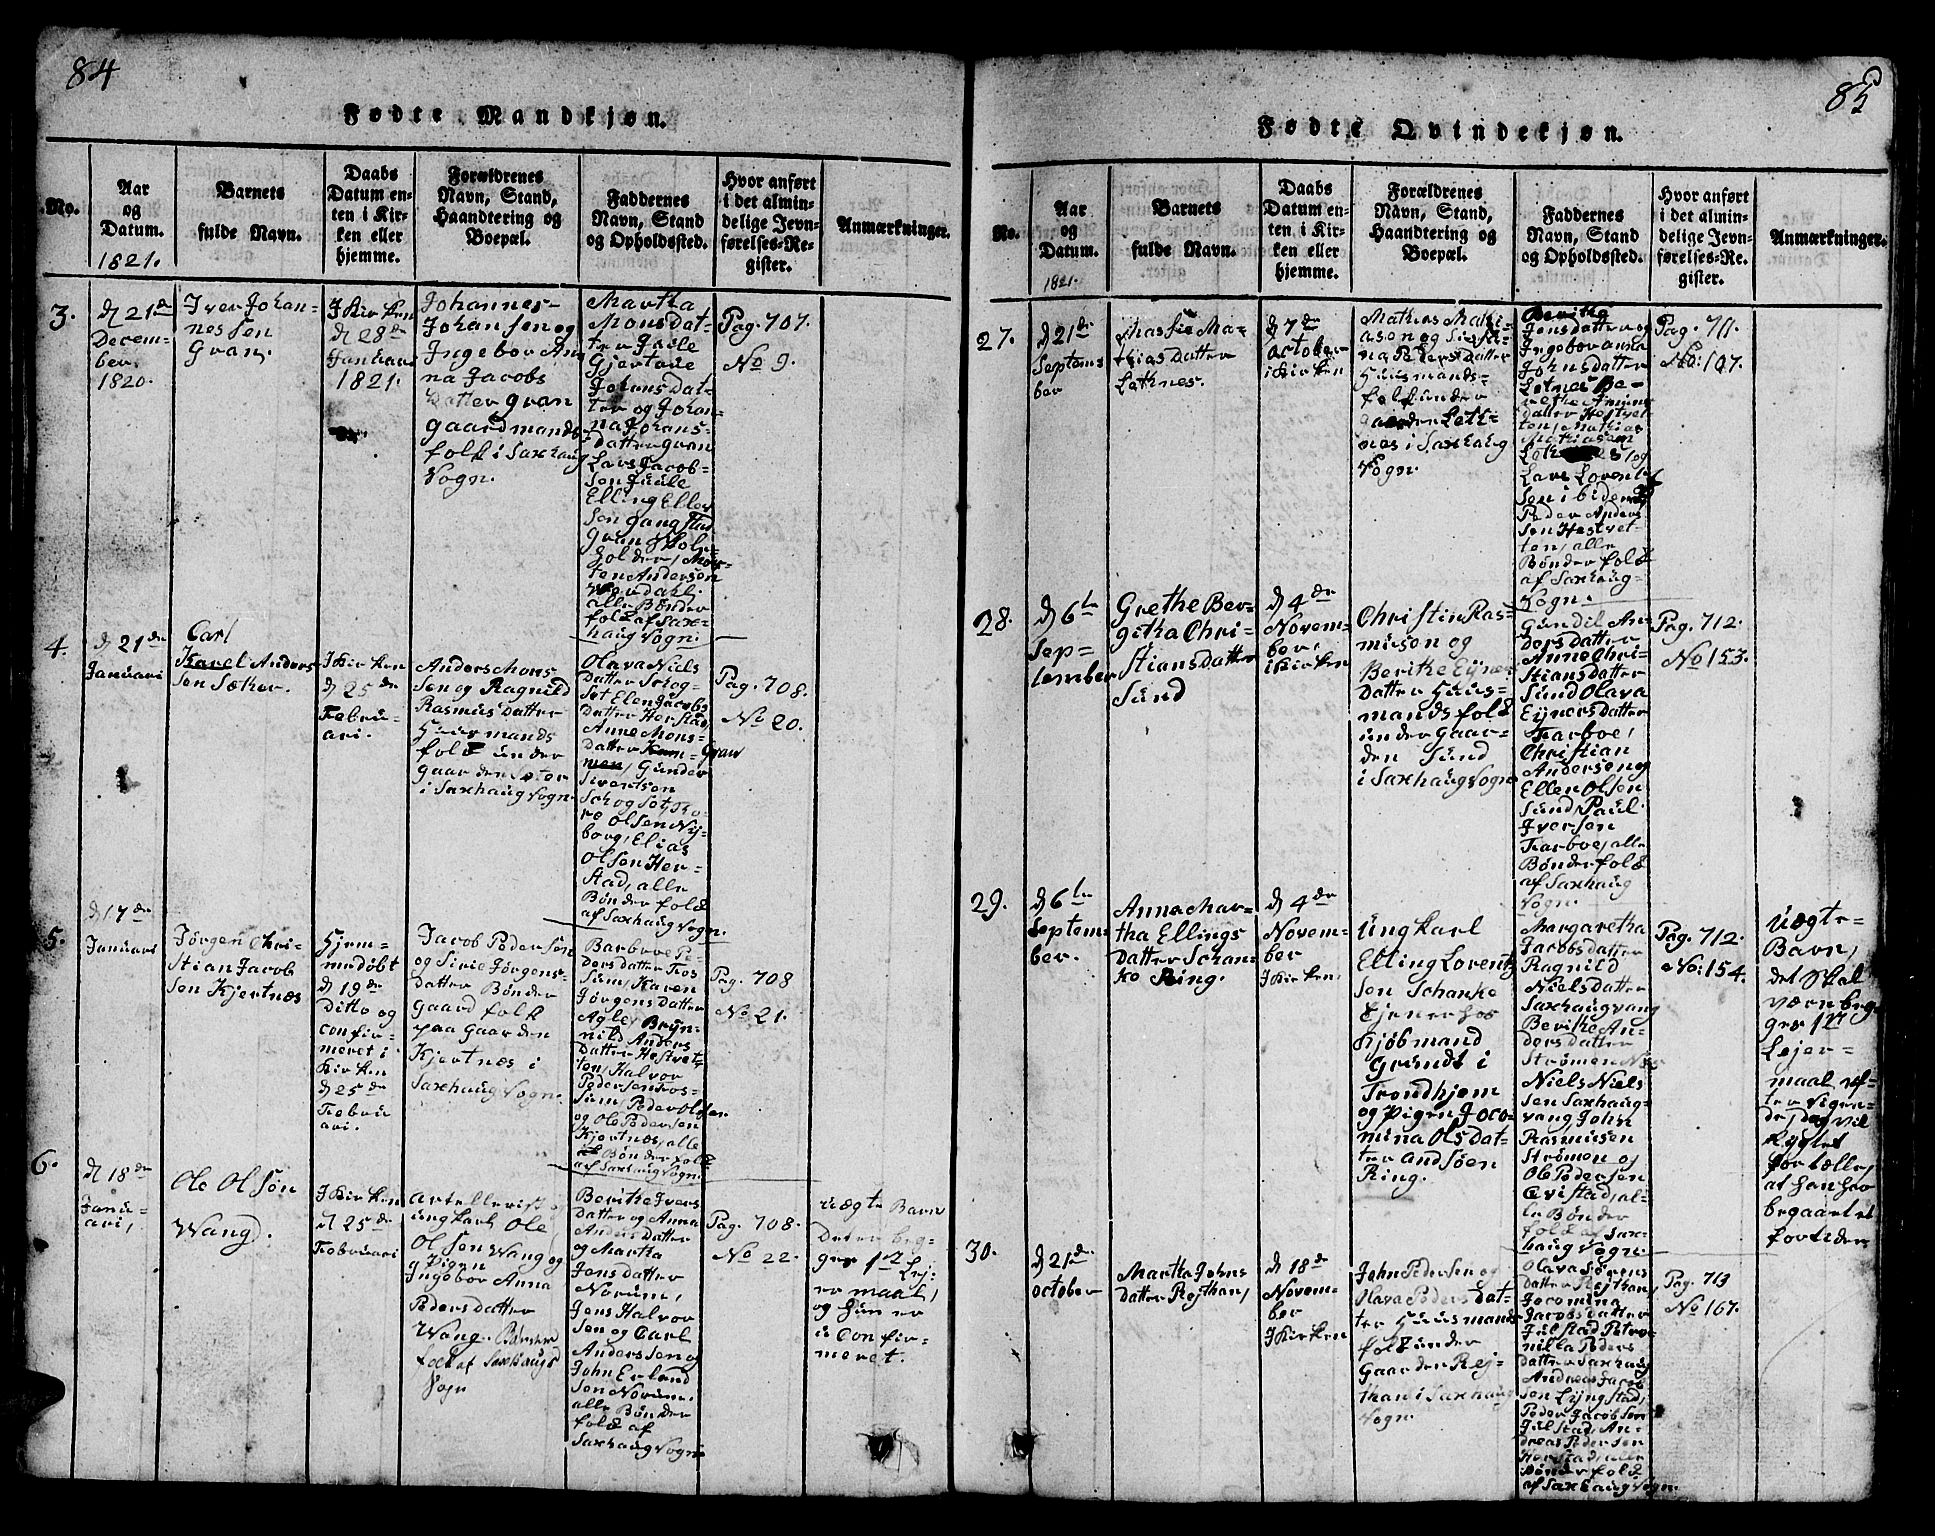 84
Fødte Mandkjøn.
No.
Aar
og
Datum.
1821.
Barnets
fulde Navn.
Daabs
Datum en-
ten i Kir-
ken eller
hjemme.
Forældrenes
Navn, Stand,
Haandtering og
Boepæl.
Faddernes
Navn, Stand
og Opholdssted.
Hvor anført
i det almin-
delige Jevn-
førelses-Re-
gister.
Anmærkninger.
3.
d 21de
Decem-
ber.
1820.
Iver Johan-
nessen
Gran,
I Kirken
d 28de
Januari
1821.
Johannes
Johansen og
Ingebor An
na Jacobs
Datter Gran
gaardmands
folk i Saxhaug
Sogn.
Martha
Monsdat-
ter Juule
Gjertrue
Johansdat-
ter og Johan-
na Johans-
Datter Gran
Lars Jacob-
sen Juule
Elling Eller
sen
Gran
holder, Mor-
ten Andersen
Werdahl.
alle Bønder
folk af Sax-
haug Sogn.
Pag. 707.
No 9.
4.
d 21de
Januari
Carl
Karel Anders
sen Sæter.
I Kirken
d 25de
Febru-
ari.
Anders Mons
sen og Ragnild
Rasmusdatter
Huusmands
folk under
Gaarden Seter
i Saxhaug Sogn.
Olava Niels
Datter Schog-
set Ellen Jacobs
Datter Herstad,
Anne Mons-
datter Kam- Gran
men, Gunder
Sivertsen
Schogset, To-
re Olsen Ny-
borg, Elias
Olsen Her-
stad, alle
Bønderfolk
af Saxhaug Sogn.
Pag. 708.
No 20.
5.
d 17de
Januari
Jørgen Chri-
stian Jacob
sen Kjertnæs
Hjem-
medøbt
d 19de
Ditto og
confir-
meret i
Kirken
d 25de
Febru
ari.
Jacob Pedersen
og Sirie Jørgens-
datter Bønder
Gaardfolk
paa Gaarden
Kjertnæs i
Saxhaug Sogn.
Barbroe Pe-
dersdatter Fos
sum, Karen
Jørgensdatter
Agle, Bryn-
nild Anders
Datter Hestvet-
ten, Halvor
Pedersen Fos-
sum, Peder Olsen
og Ole Pedersen
Kjertnæs, alle
Bønderfolk
af Saxhaug Sogn.
Pag. 708
No 21.
6.
d 18de
Janu-
ari,
Ole Olsøn
Wang.
I Kirken
d 25de
Februari
Artellerist og
ungkarl Ole
Olsen Wang og
Pigen
Ingebor Anna
Pedersdatter
Wang. Bønder
folk af Saxhaugs
Sogn
Berithe Ivers
Datter og Anna
Andersdatter
og Martha
Jensdatter
Norum,
Jens Halvor
sen og Carl
Anderssen og
John Erland
sen Norum.
alle Bønder
folk af
Saxhaug Sogn.
Pag. 708.
No 22.
uægte Barn
Det er beg-
ges 1ste Lej-
er maal,
og hun er
uconfir-
meret.
85
Fødte Qvindekjøn.
No.
Aar
og
Datum.
1821.
Barnets
fulde Navn.
Daabs
Datum en-
ten i Kir-
ken eller
hjemme.
Forældrenes
Navn, Stand,
Haandtering og
Boepæl.
Faddernes
Navn, Stand
og Opholdssted.
Hvor anført
i det almin-
delige Jevn-
førelses-Re-
gister.
Anmærkninger.
27.
d 21de
Septem
ber
Massie Ma-
thias Datter
Letknes.
d 7de
October
i Kirken
Mathias Mathi-
asen og Siri
na Pedersdatter
Huusmands-
folk under
Gaarden Letk-
nes i Saxhaug
Sogn.
Berithe
Jensdatter og
Ingebor Anna
Johnsdatter
Letnes Be-
rethe
datter Hestvet-
ten, Mathias
Mathiasen
og
Lars Lorent
sen ibidem
Peder Anders
sen Hestvet-
ten, alle
Bønderfolk
af Saxhaug-
Sogn.
Pag. 711.
No: 107.
28.
d 6te
Sep-
tember
Grethe Ber-
githa Chri-
stiansdatter
Sund
d 4de
Novem-
ber,
i Kirken
Christin Ras-
musen og
Berithe Ejner
Datter Huus-
mandsfolk
under Gaar-
den Sund
i Saxhaug Sogn
Gundil An-
dersdatter
Anne Chri-
stiansdatter
Sund Olava
Eynersdatter
Farboe,
Christian
Andersen og
Ellen Olsen
Sund, Paul
Iversen
Farboe, alle
Bønderfolk
af Saxhaug
Sogn.
Pag. 712.
No 153.
29.
d 6te
Septem
ber.
Anna Mar-
tha Ellings
datter Schan-
ke Ring.
d 4de
Novem-
ber
I Kirken.
Ungkarl
Elling Lorentz
sen Schanke
tjener hos
Kjøbmand
Grundt i
Trondhjem
og Pigen Jaco-
mina Olsdat-
ter Andsøen
Ring.
Margaretha
Jacobsdatter
Ragnild
Nielsdatter
Saxhaugvang
Berithe An-
dersdatter
Strømen
Niels Niels
sen Saxhaug-
vang, John
Rasmusen
Strømen og
Ole Pedersen
Qvistad, al-
le Bønder
folk af Sax-
haug Sogn.
Pag. 712.
No: 154.
Uægte-
Barn,
det skal
være beg-
ges 1ste
Lejer-
maal, ef-
ter Sigen-
de, dog vil
Rygtet
fortælle,
at han har
begaaet et
for siden
30.
d 21de
october
Martha Johns
datter Rejthan,
d 18de
Novem-
ber
I Kirken
John Pedersen og
Olava Pedersdat-
ter Huusmands
folk under
Gaarden Rej-
than i Saxhaug
Sogn.
Olava Sørens
datter Rejthan,
Jacomina
Jacobsdatter
Julstad Petro-
nilla Peders
datter Saxhaug
Andreas Jacob
sen Lyngstad,
Peder Jacobsen
Julstad, An-
dreas Pedersen
Herstad, alle
Bønderfolk
af Saxhaug Sogn.
Pag. 713
No 167.